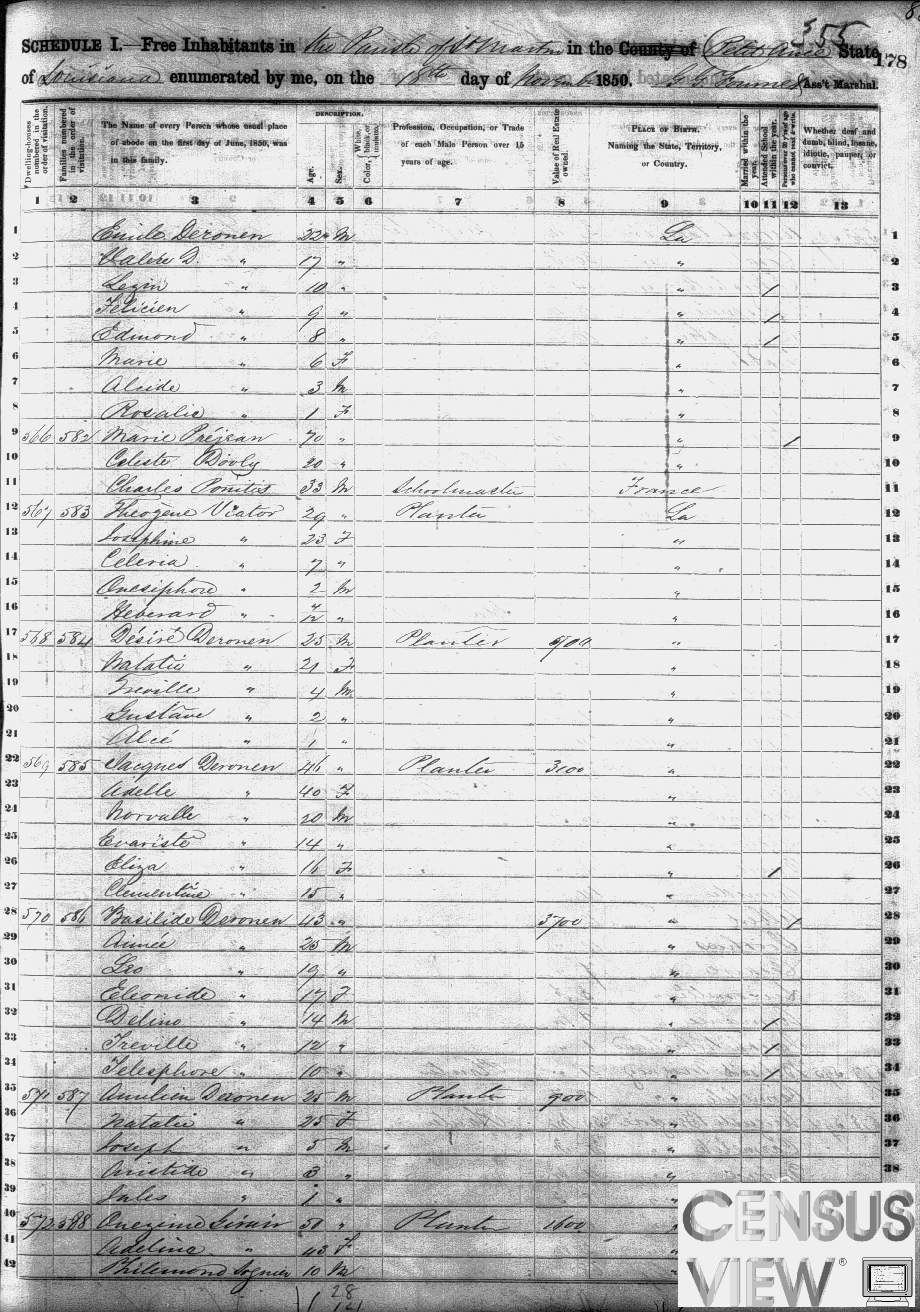 355
178
SCHEDULE I.—Free Inhabitants in the Parish of St Martin in the County of Petite Anse State
of Louisiana enumerated by me, on the 18th day of November 1850. Ass't Marshal.
DESCRIPTION.
Dwelling-houses numbered in the order of visitation.
Families numbered in the order of visitation.
The Name of every Person whose usual place of abode on the first day of June, 1850, was in this family.
Age.
Sex.
Color, White, black, or mulatto.
Profession, Occupation, or Trade of each Male Person over 15 years of age.
Value of Real Estate owned.
PLACE OF BIRTH. Naming the State, Territory, or Country.
Married within the year.
Attended School within the year.
Persons over 20 y'rs of age who cannot read & write.
Whether deaf and dumb, blind, insane, idiotic, pauper, or convict.
1 2 3 4 5 6 7 8 9 10 11 12 13
1 Emile Deronen 22 M La 1
2 Valere D. " 17 " " 2
3 Lezin " 10 " " / 3
4 Felicien " 9 " " / 4
5 Edmond " 8 " " / 5
6 Marie " 6 F " 6
7 Alcide " 3 M " 7
8 Rosalie " 1 F " 8
9 566 582 Marie Préjean 70 " " / 9
10 Celeste 20 " " 10
11 Charles 33 M Schoolmaster France 11
12 567 583 Theogene Viator 29 " Planter La 12
13 Josephine " 23 F " 13
14 Celeria " 7 " " 14
15 Onesiphore " 2 M " 15
16 Heberard " " " 16
17 568 584 Désiré Deronen 25 M Planter " 17
18 Natalie " 21 F " 18
19 Treville " 4 M " 19
20 Gustave " 2 " " 20
21 Alcé " 1 " " 21
22 569 585 Jacques Deronen 46 " Planter 3100 " 22
23 Adelle " 40 F " 23
24 Norvalle " 20 M " 24
25 Evariste " 14 " " 25
26 Eliza " 16 F " / 26
27 Clementine " 15 " " 27
28 570 586 Basilide Deronen 43 " 3700 " / 28
29 Aimée " 23 M " 29
30 Leo " 19 " " 30
31 Eleonide " 17 F " 31
32 Delino " 14 M " / 32
33 Treville " 12 " " / 33
34 Telesphore " 10 " " / 34
35 571 587 Aurelien Deronen 25 M Planter 900 " 35
36 Natalie " 25 F " 36
37 Joseph " 5 M " 37
38 Aristide " 3 " " 38
39 Jules " 1 " "
40 572 588 Onezime 50 " Planter 1600
41 Adelina " 43 F
42 Philemond 10 M
28
14
CENSUS
VIEW®